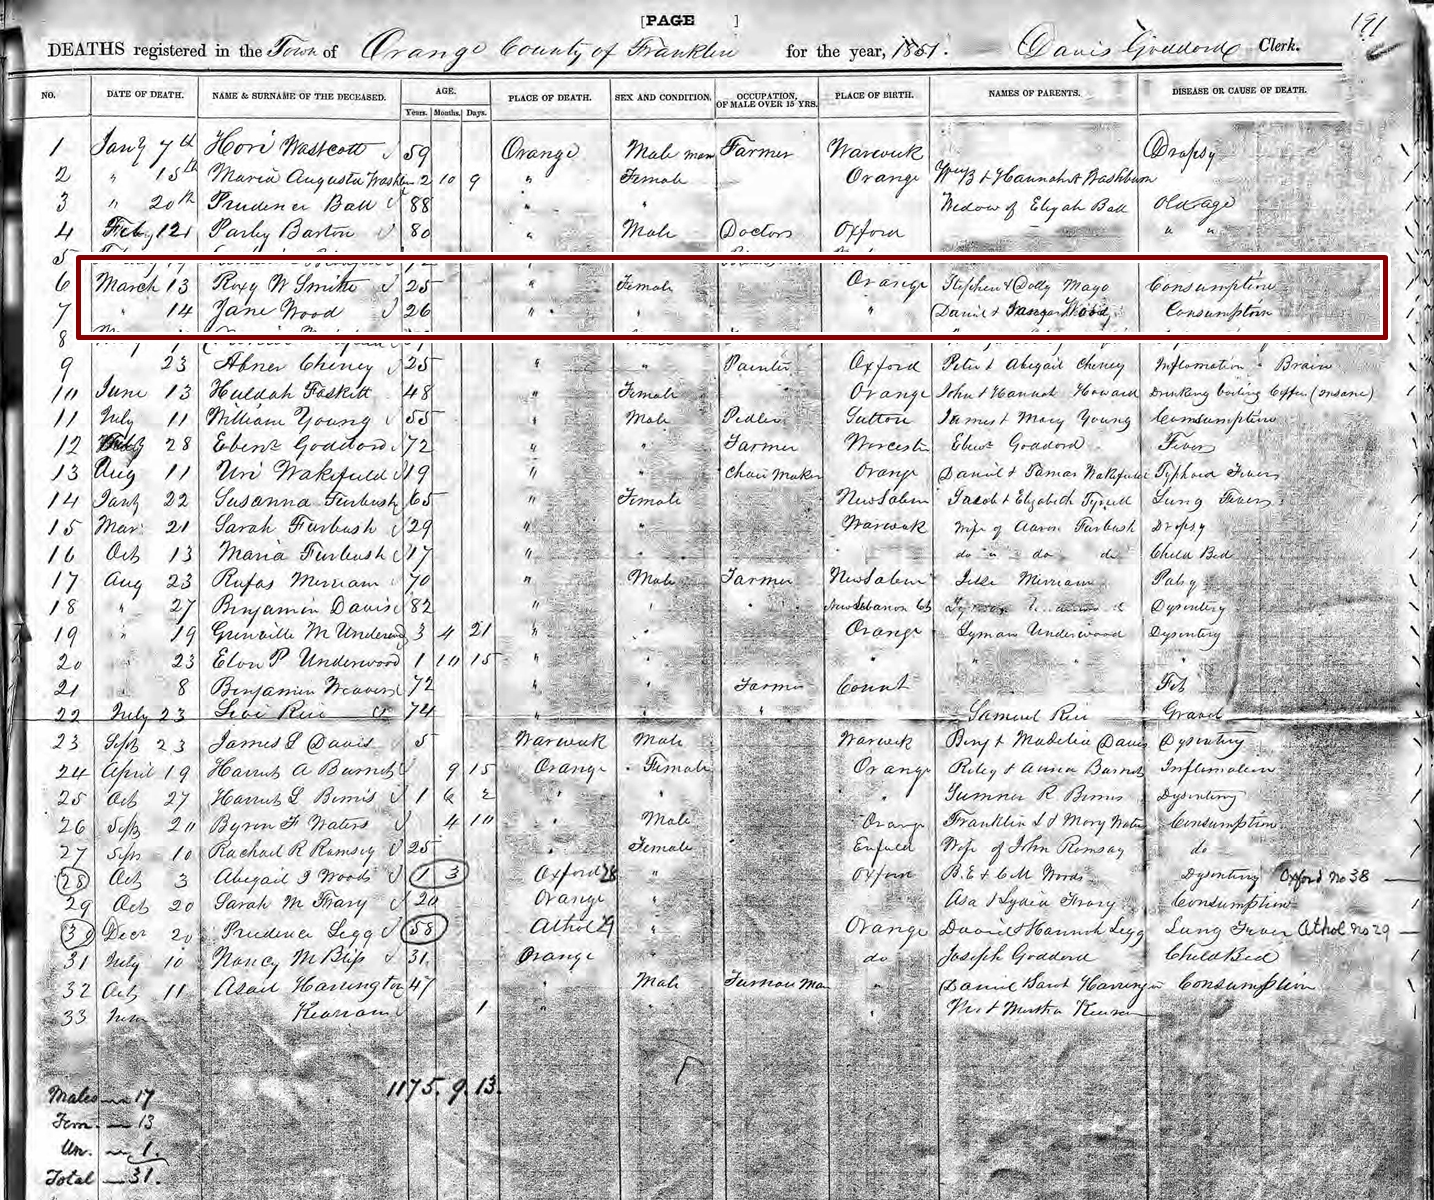 [PAGE ]
191
DEATHS registered in the Town of Orange County of Franklin for the year, 1851. Davis Goddord Clerk.
NO. DATE OF DEATH. NAME & SURNAME OF THE DECEASED. AGE. PLACE OF DEATH. SEX AND CONDITION. OCCUPATION, OF MALE OVER 15 YRS. PLACE OF BIRTH. NAMES OF PARENTS. DISEASE OR CAUSE OF DEATH.
Years. Months. Days.
1 Jany 7th Hori Wastcott 59 Orange Male man Farmer Warwick Dropsy
2 " 15th Maria Augusta Washbn 2 10 9 Female Orange Wm B & Hannah A Washburn
3 " 20th Prudence Ball 88 " " Widow of Elijah Ball Old age
4 Feby 12 Parley Barton 80 " Male Doctors Oxford " "
5
6 March 13 Roxy W Smith 25 " Female Orange Stephen & Dolly Mayo Consumption
7 " 14 Jane Wood 26 " " " Daniel & Wood Consumption
8
9 23 Abner Cheney 25 " " Painter Oxford Peter & Abigail Cheney Inflamation Brain
10 June 13 Huldah Foskitt 48 " Female Orange John & Hannah Howard Drinking boiling Coffee (insane)
11 July 11 William Young 55 " Male Pedler Sutton James & Mary Young Comsumption
12 28 Ebenr Goddord 72 " " Farmer Worcester Ebenr Goddord Fever
13 Aug 11 Uri Wakefield 19 " " Chair Maker Orange Daniel & Tamar Wakefield Typhoid Fever
14 Jany 22 Susanna Furbush 65 " Female New Salem Jacob & Elizabeth Tyrell Lung Fever
15 Mar 21 Sarah Furbush 29 " Warwick Wife of Aaron Furbush Dropsy
16 Oct 13 Maria Furbush 17 " " " do " do do Child Bed
17 Aug 23 Rufas Merriam 70 " Male Farmer New Salem Merriam Palsy
18 " 27 Benjamin Davis 82 " " " New Lebanon Ct Dysentery
19 " 19 Grinville M Underwd 3 4 21 " " Orange Lyman Underwood Dysentery
20 " 23 Elon P Underwood 1 10 15 " " " " " "
21 8 Benjamin Weaver 72 " " Farmer Connt Fit
22 July 23 Levi Rice 74 " " " Samuel Rice Gravel
23 Sept 23 James L Davis 5 Warwick Male Warwick Benj & Madelia Davis Dysentery
24 April 19 Harriet A Burnet 9 15 Orange Female Orange Riley & Burnet Inflimation
25 Oct 27 Harriet L Bemis 1 6 2 " " " Sumner R Bemis Dysentery
26 Sept 20 Byron F Waters 4 10 " Male Orange Franklin L & Mary Waters Consumption
27 Sept 10 Rachael R Ramsey 25 " Female Enfield Wife of John Ramsay do
28 Oct 3 Abigail J Woods 1 3 Oxford 28 " Oxford B.E & C M Woods Dysentery Oxford No 38
29 Oct 20 Sarah M Frary 20 Orange " Asa & Lydia Frary Consumption
30 Decr 20 Prudence Legg 58 Athol 29 " Orange David & Hannah Legg Lung Fever Athol No 29
31 July 10 Nancy M 31 Orange " do Joseph Goddord Child Bed
32 Oct 11 Asail Harrington 47 " Male Furnace Man " Daniel Harrington Consumption
33 June Kearsam 1 " " " & Martha
1175. 9. 13.
Males — 17
Fem. — 13
Un. — 1.
Total — 31.